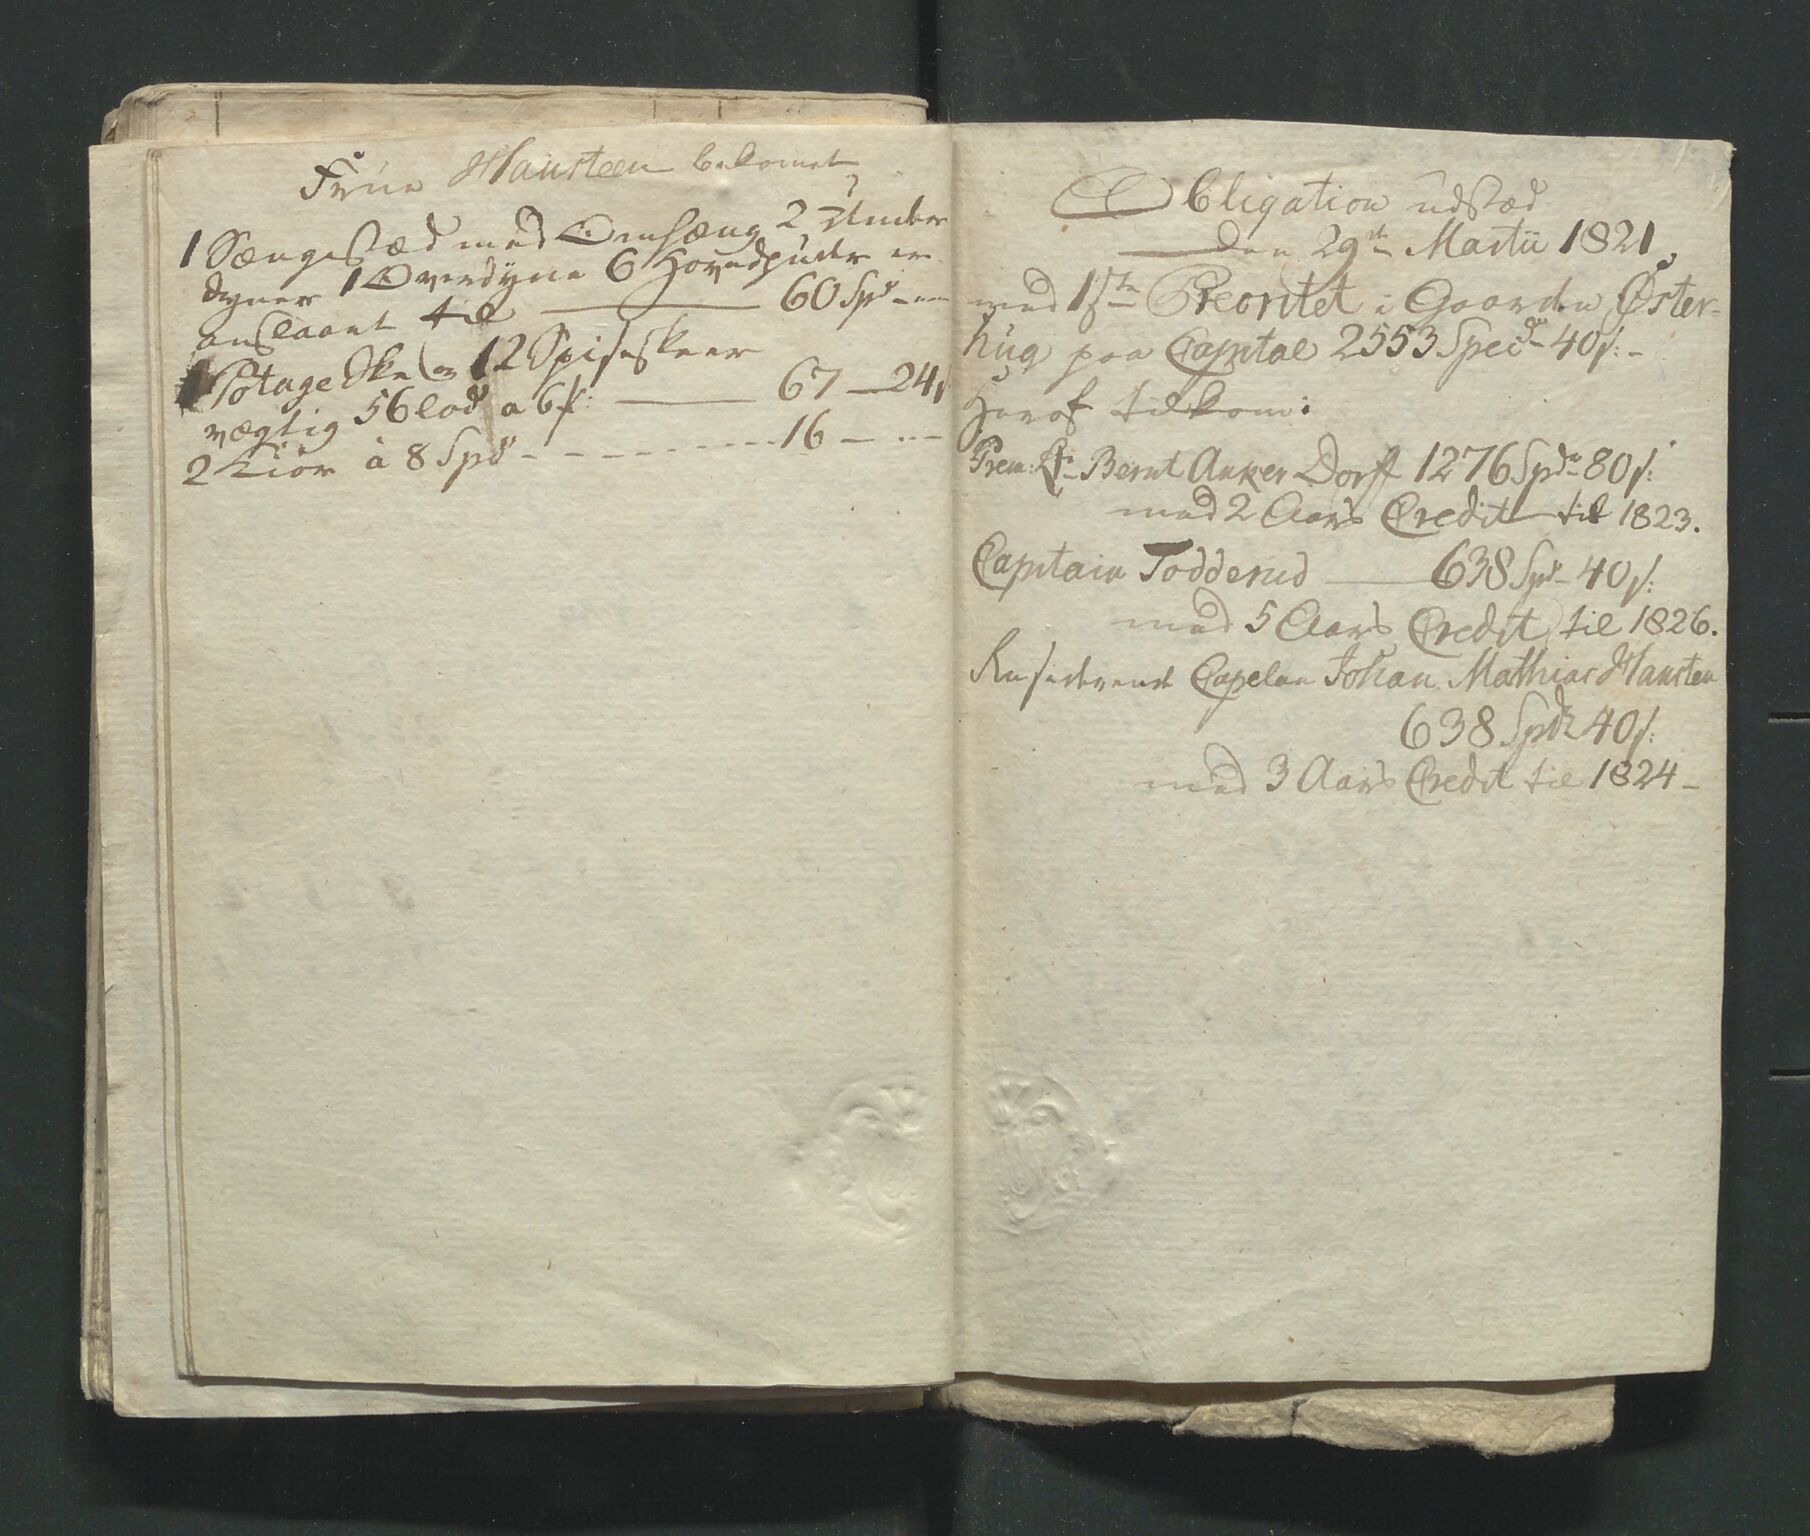 Frue Hansteen bekomet
1 Sængestæd med Omhæng 2 Under
dyner 1 Overdyne 6 Hovedpuder er
anslaaet til — 60 Spd - —
1 Potage Ske og 12 Spiseskeer
vægtig 56 Lod a 6 ꝭ: — 67 — 24 ꝭ
2 Kiör à 8 Spd - - - - - - - 16 — —
Obligation udstæd
den 29de Martii 1821,
med 1ste Preoritet i Gaarden Øster-
hug paa Capital 2553 Specd 40 ꝭ: -
Heraf tilkom:
Prem: Lt Bernt Anker Dorff 1276 Spdr 80 ꝭ:
med 2 Aars Credit til 1823.
Capitain Todderud — 638 Spdr 40 ꝭ:
med 5 Aars Credit til 1826.
Residerende Capelan Johan Mathias Hansten
638 Spdr 40 ꝭ:
med 3 Aars Credit til 1824 -